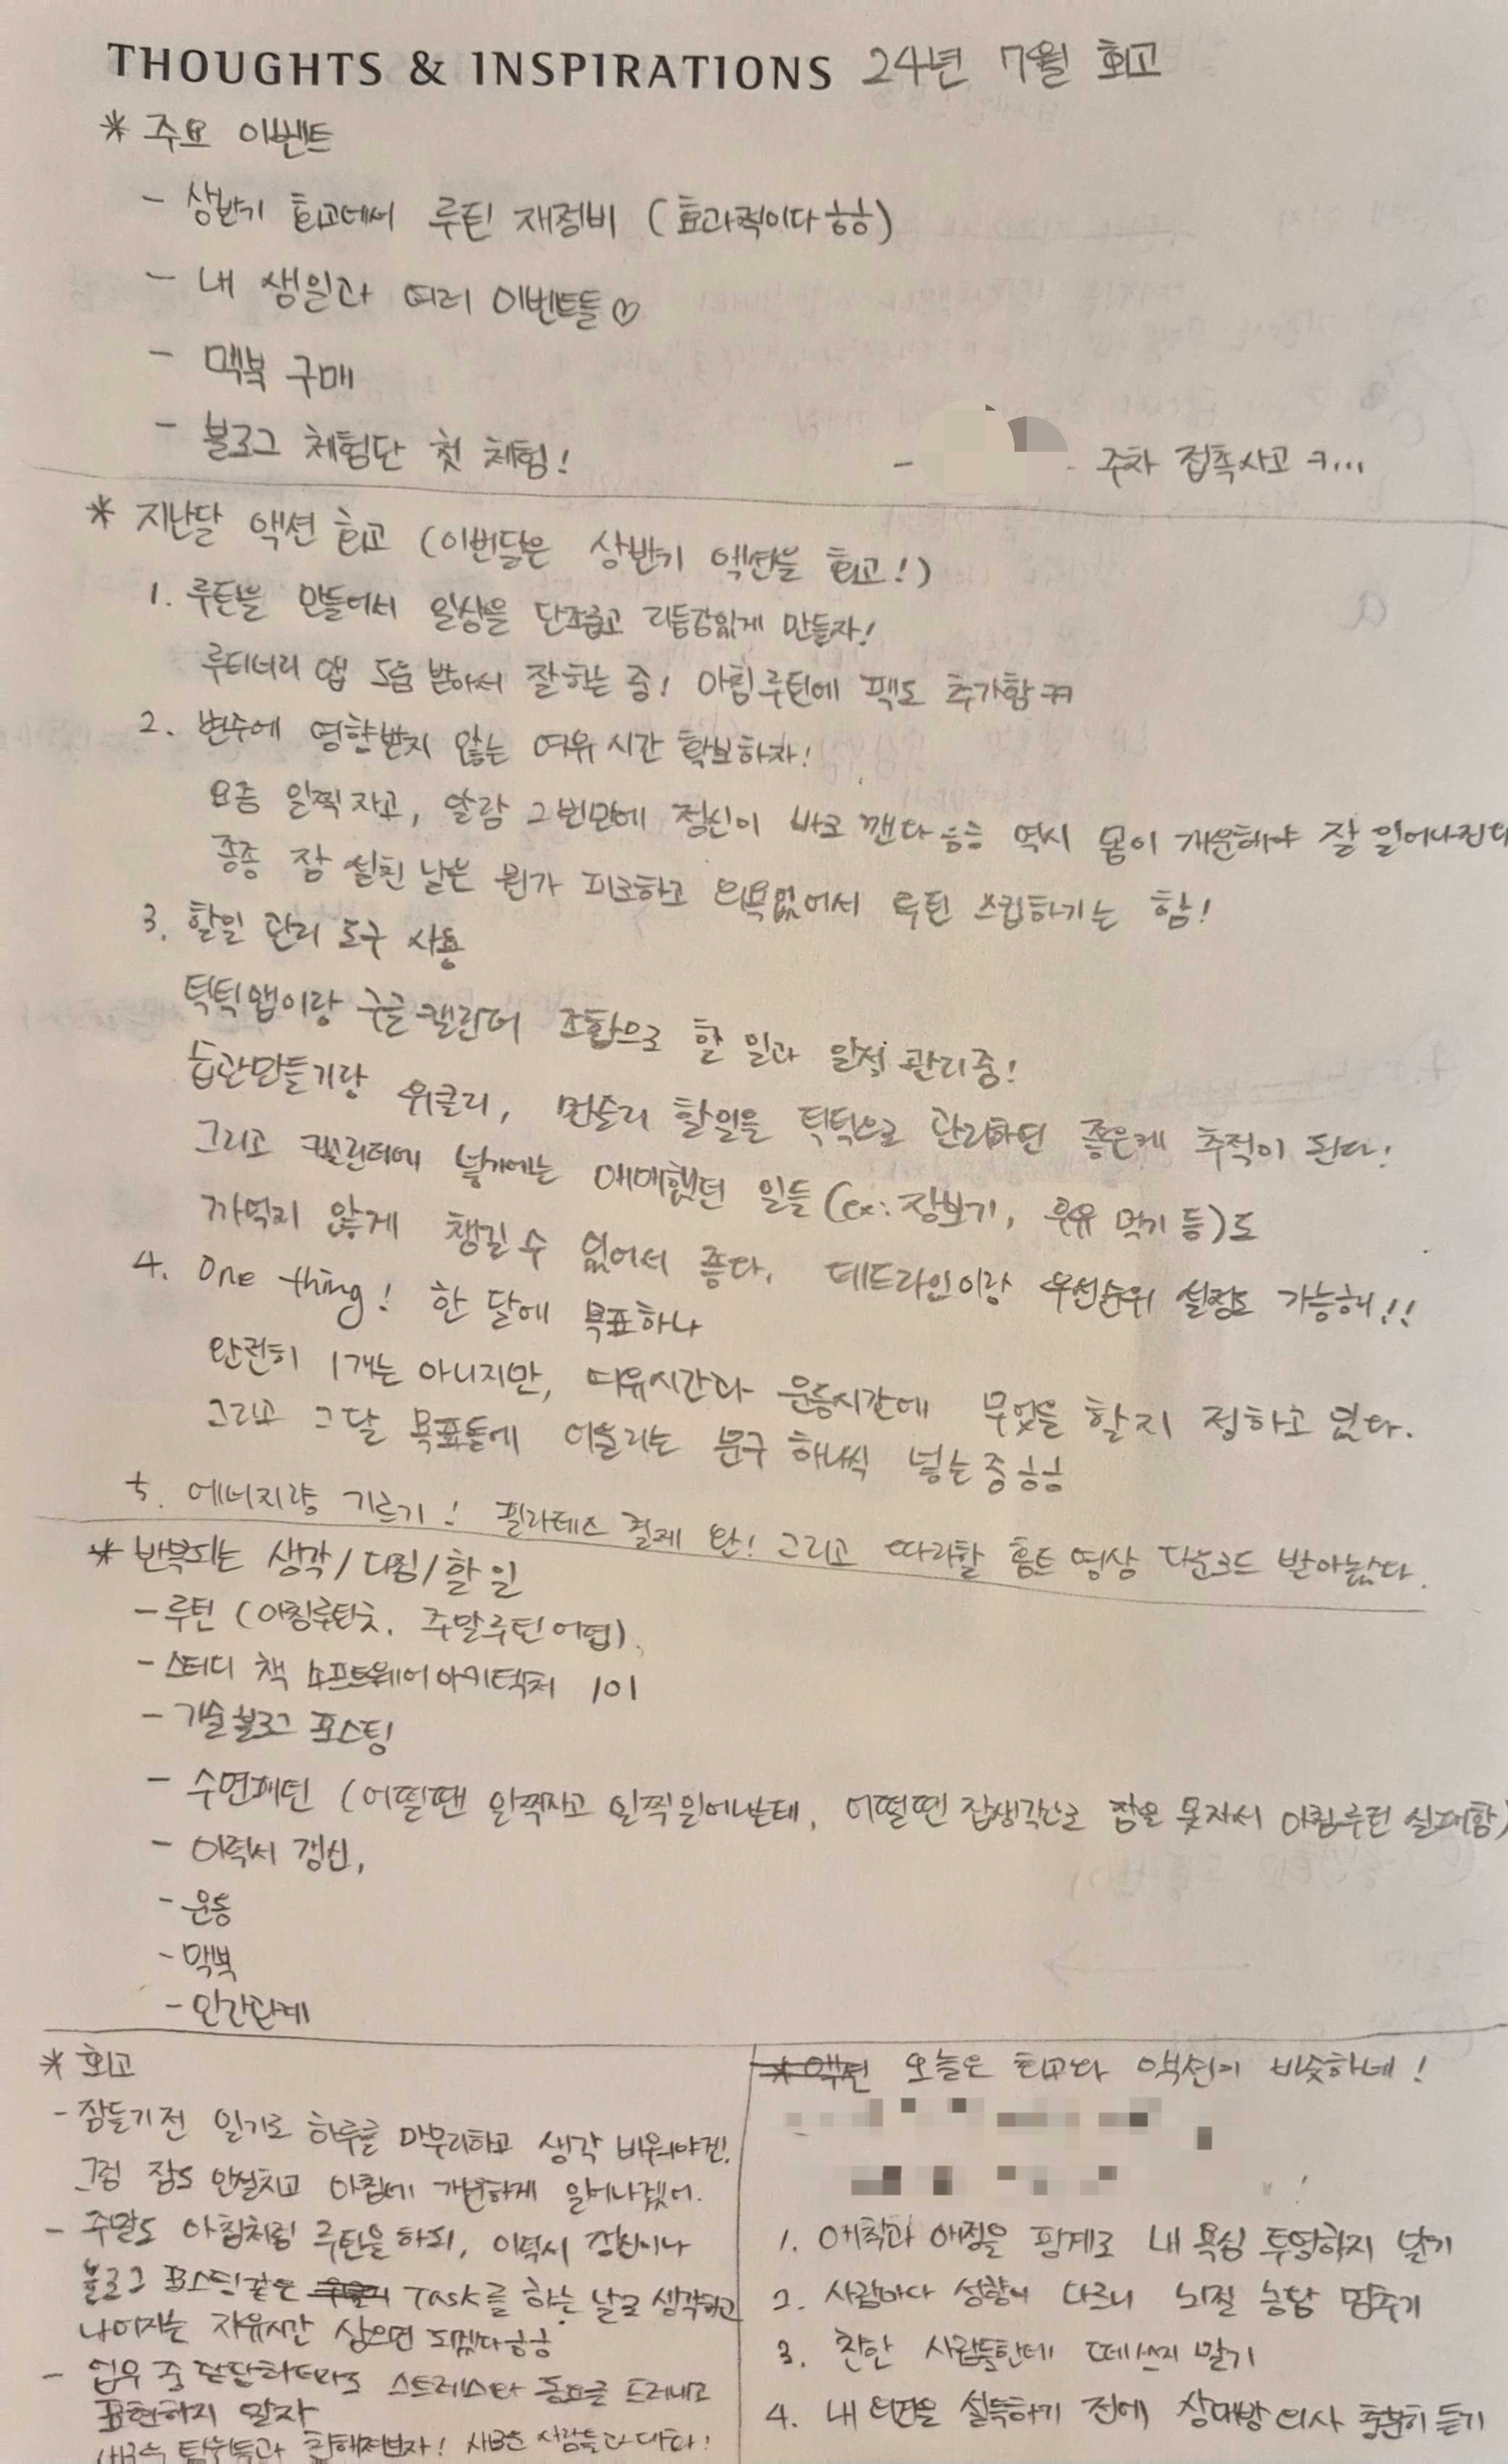 THOUGHTS & INSPIRATIONS 24년 7월 회고
* 주요 이벤트
- 상반기 회고에서 루틴 재정비 (효과적이다 ㅎㅎ)
- 내 생일과 여러 이벤트들♡
- 맥북 구매
- 블로그 체험단 첫 체험!
- 주차 접촉사고 ㅋ...
* 지난달 액션 회고 (이번달은 상반기 액션을 회고!)
1. 루틴을 만들어서 일상을 단조롭고 리듬감있게 만들자!
루티너리 앱 도움 받아서 잘하는 중! 아침루틴에 팩도 추가함 ㅋㅋ
2. 변수에 영향받지 않는 여유 시간 확보하자!
요즘 일찍 자고, 알람 2번만에 정신이 바로 깬다 ㅎㅎ 역시 몸이 개운해야 잘 일어나진다
종종 잠 설친 날은 뭔가 피로하고 의욕없어서 루틴 스킵하기는 함!
3. 할일 관리 도구 사용
틱틱앱이랑 구글캘린더 조합으로 할 일과 일정 관리중!
습관만들기랑 위클리, 먼슬리 할일을 틱틱으로 관리하면 좋은게 추적이 된다!
그리고 캘린더에 넣기에는 애매했던 일들 (ex: 장보기, 우유 먹기 등)도
까먹지 않게 챙길 수 있어서 좋다. 데드라인이랑 우선순위 설정도 가능해!!
4. One thing! 한 달에 목표하나
완전히 1개는 아니지만, 여유시간과 운동시간에 무엇을 할지 정하고 있다.
그리고 그달 목표들에 어울리는 문구 하나씩 넣는중 ㅎㅎ
5. 에너지량 기르기! 필라테스 결제 완! 그리고 따라할 홈트 영상 다운로드 받아놨다.
* 반복되는 생각/다짐/할 일
- 루틴 (아침루틴굿, 주말루틴어렵).
- 스터디 책 소프트웨어아키텍처 101
- 기술블로그 포스팅
- 수면패턴 (어떨땐 일찍자고 일찍일어나는데, 어떨땐 잡생각으로 잠을 못자서 아침루틴 실패함)
- 이력서 갱신,
- 운동
- 맥북
- 인간관계
* 회고
- 잠들기전 일기로 하루를 마무리하고 생각 비워야겐!
그럼 잠도 안설치고 아침에 개운하게 일어나겠어.
- 주말도 아침처럼 루틴을 하되, 이력서 갱신이나
블로그 포스팅같은 Task를 하는 날로 생각하고
나머지는 자유시간 삼으면 되겠다 ㅎㅎ
- 업무 중 답답하더라도 스트레스와 동요를 드러내고
표현하지 말자
*액션 오늘은 회고와 액션이 비슷하네!
1. 애착과 애정을 핑계로 내 욕심 투영하지 말기
2. 사람마다 성향이 다르니 뇌절 농담 멈추기
3. 친한 사람들한테 떼쓰지 말기
4. 내 의견을 설득하기 전에 상대방 의사 충분히 듣기